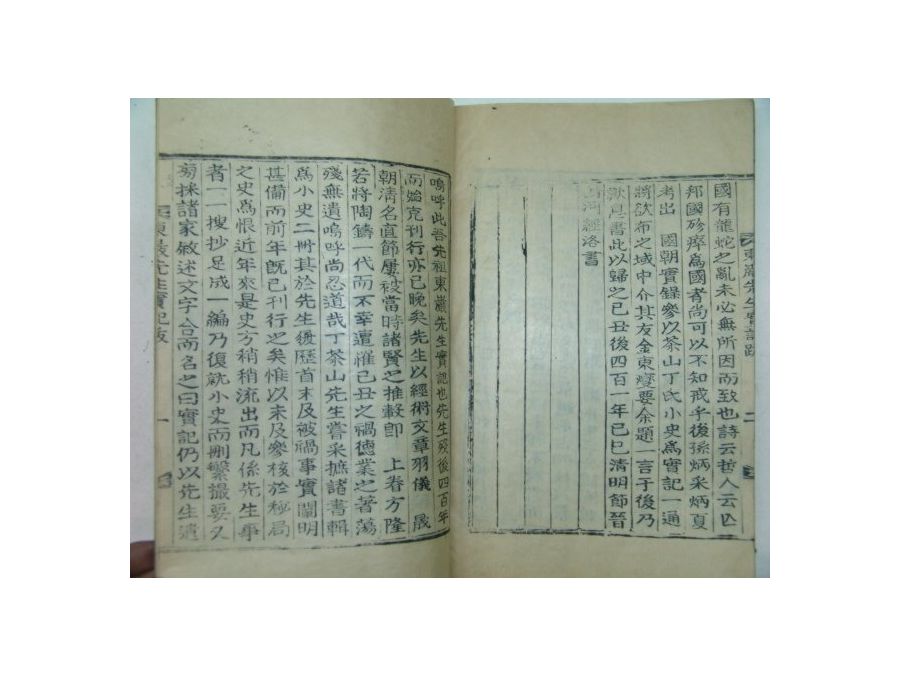 東巖先生實記跋
二
國有龍蛇之亂未必無所因而致也詩云哲人云亡
邦國殄瘁爲國者尚可以不知戒乎後孫炳采炳夏
考出 國朝實錄參以茶山丁氏小史爲實記一通
將欲布之域中介其友金東燮要余題一言于後乃
歎息書此以歸之己丑後四百一年己巳清明節晉
山河經洛書
嗚呼此吾先祖東巖先生實記也先生歿後四百年
而始克刊行亦已晚矣先生以經術文章羽儀 晟
朝淸名直節屢被當時諸賢之推轂卽 上眷方隆
若將陶鑄一代而不幸遭罹己丑之禍德業之著蕩
殘無遺嗚呼尚忍道哉丁茶山先生嘗采摭諸書輯
爲小史二冊其於先生履歷首末及被禍事實闡明
甚備而前年旣已刊行之矣惟以未及參核於秘局
之史爲恨近年來是史方稍稍流出而凡係先生事
者一一搜抄足成一編乃復就小史而刪繁撮要又
菊採諸家敘述文字合而名之曰實記仍以先生遺
東巖先生實記跋
一